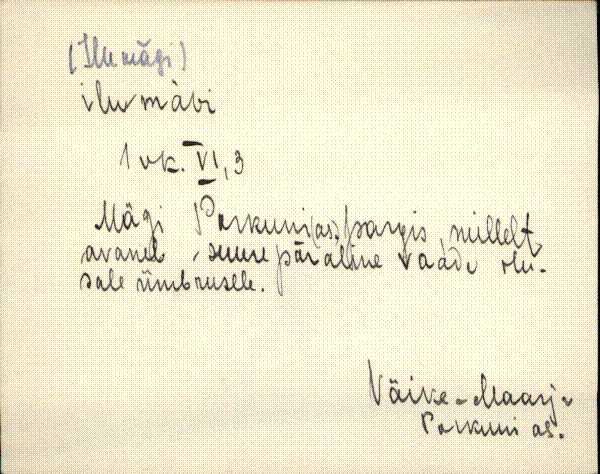 (Ilumägi)
ilumäɢi
1 vk. VI, 3
Mägi Porkuni (as.) pargis, millelt
avaneb suurepäraline vaade ilu-
sale ümbrusele.
Väike-Maarja
Porkuni as.